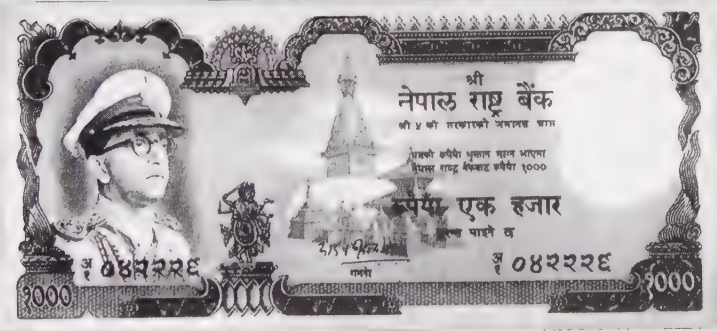 श्री
नेपाल राष्ट्र बैंक
श्री ५ को सरकारको जमानत प्राप्त
रुपैयाँ भुक्तान माग्न आएमा
नेपाल राष्ट्र बैंकबाट रुपैयाँ १०००
रुपैयाँ एक हजार
पाइने छ
गभर्नर
अ १ ०४२२२६
अ १ ०४२२२६
१०००
१०००